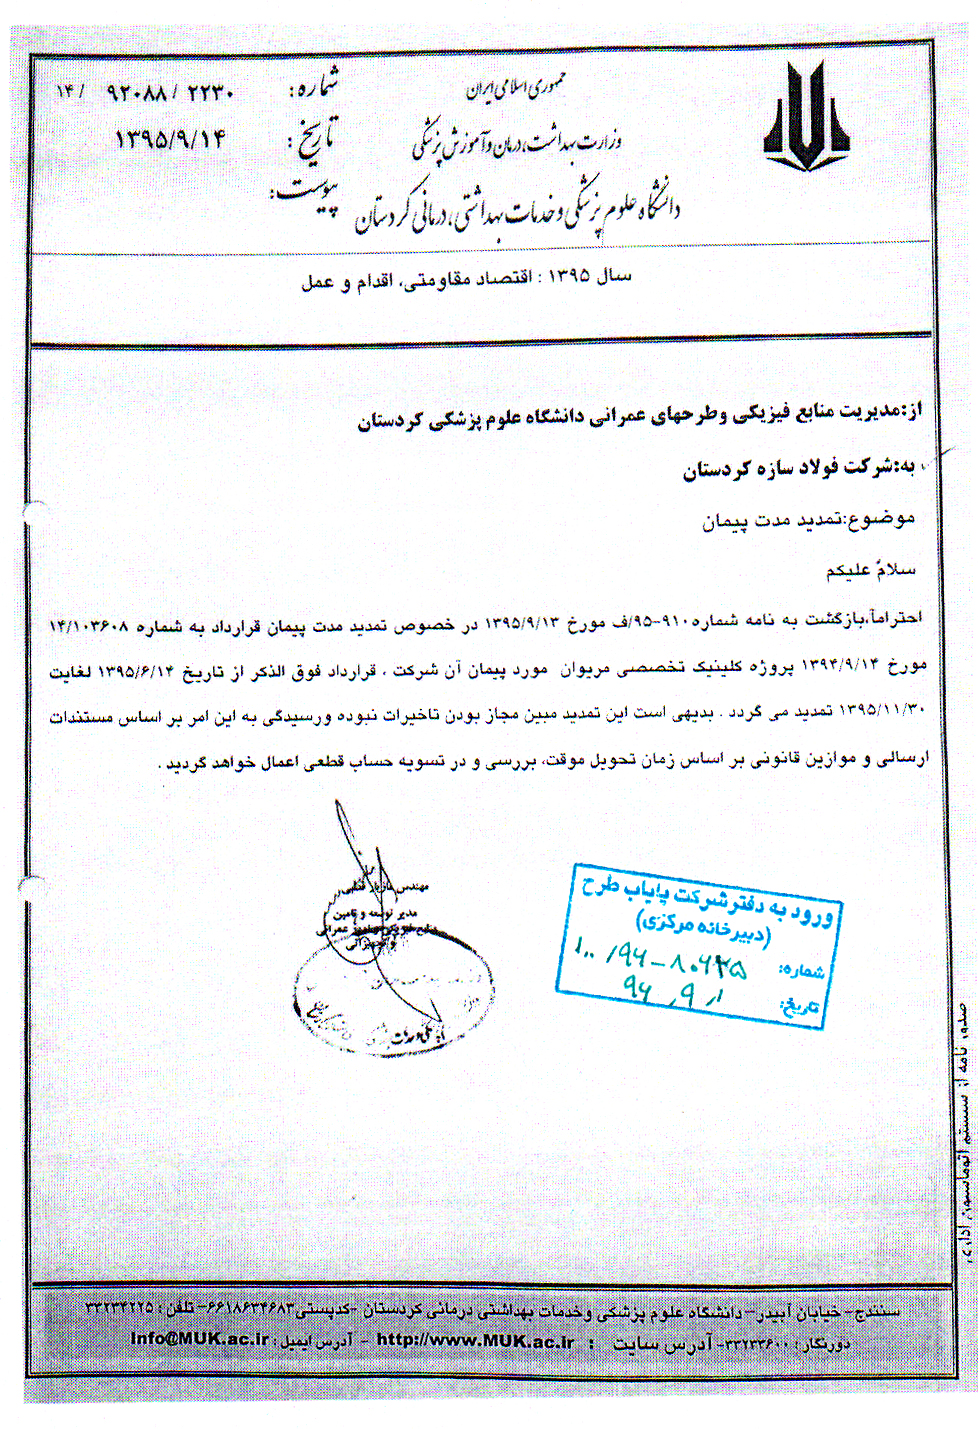 جمهوری اسلامی ایران
وزارت بهداشت، درمان و آموزش پزشکی
دانشگاه علوم پزشکی و خدمات بهداشتی، درمانی کردستان
شماره: ۱۴/ ۹۲۰۸۸/ ۲۲۳۰
تاریخ: ۱۳۹۵/۹/۱۴
پیوست:
سال ۱۳۹۵ : اقتصاد مقاومتی، اقدام و عمل
از:مدیریت منابع فیزیکی وطرحهای عمرانی دانشگاه علوم پزشکی کردستان
به:شرکت فولاد سازه کردستان
موضوع:تمدید مدت پیمان
سلامٌ علیکم
احتراماً،بازگشت به نامه شماره۹۱۰-۹۵/ف مورخ ۱۳۹۵/۹/۱۳ در خصوص تمدید مدت پیمان قرارداد به شماره ۱۴/۱۰۳۶۰۸
مورخ ۱۳۹۴/۹/۱۴ پروژه کلینیک تخصصی مریوان مورد پیمان آن شرکت ، قرارداد فوق الذکر از تاریخ ۱۳۹۵/۶/۱۴ لغایت
۱۳۹۵/۱۱/۳۰ تمدید می گردد . بدیهی است این تمدید مبین مجاز بودن تاخیرات نبوده ورسیدگی به این امر بر اساس مستندات
ارسالی و موازین قانونی بر اساس زمان تحویل موقت، بررسی و در تسویه حساب قطعی اعمال خواهد گردید .
مهندس
مدیر توسعه و تامین
ورود به دفتر شرکت پایاب طرح
(دبیرخانه مرکزی)
شماره:
تاریخ:
صدور نامه از سیستم اتوماسیون اداری
سنندج- خیابان آبیدر- دانشگاه علوم پزشکی وخدمات بهداشتی درمانی کردستان -کدپستی۶۶۱۸۶۳۴۶۸۳- تلفن : ۳۳۲۳۴۲۲۵
دورنگار : ۳۳۲۳۳۶۰۰- آدرس سایت : http://www.MUK.ac.ir - آدرس ایمیل : Info@MUK.ac.ir